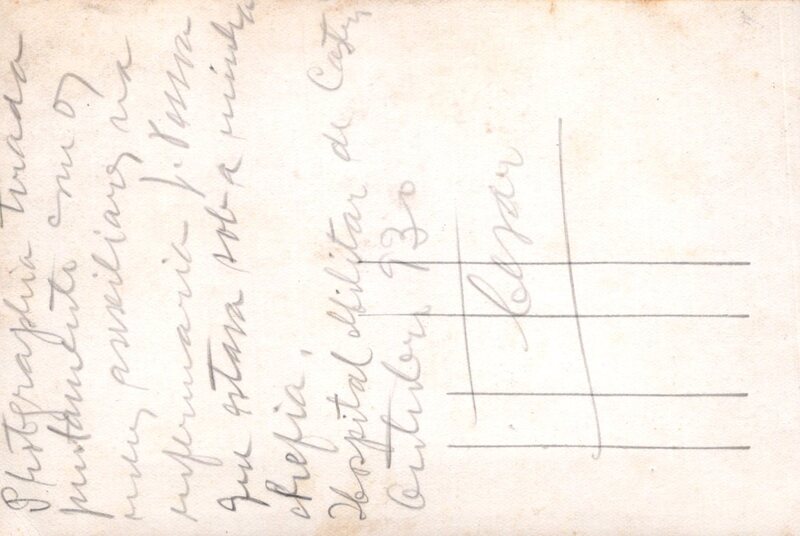 Photographia tirada
juntamente com os
meus auxiliares na
infermaria J. Pessoa
que estava sob a minha
chefia.
Hospital Militar de Castro
Outubro 930
Cesar